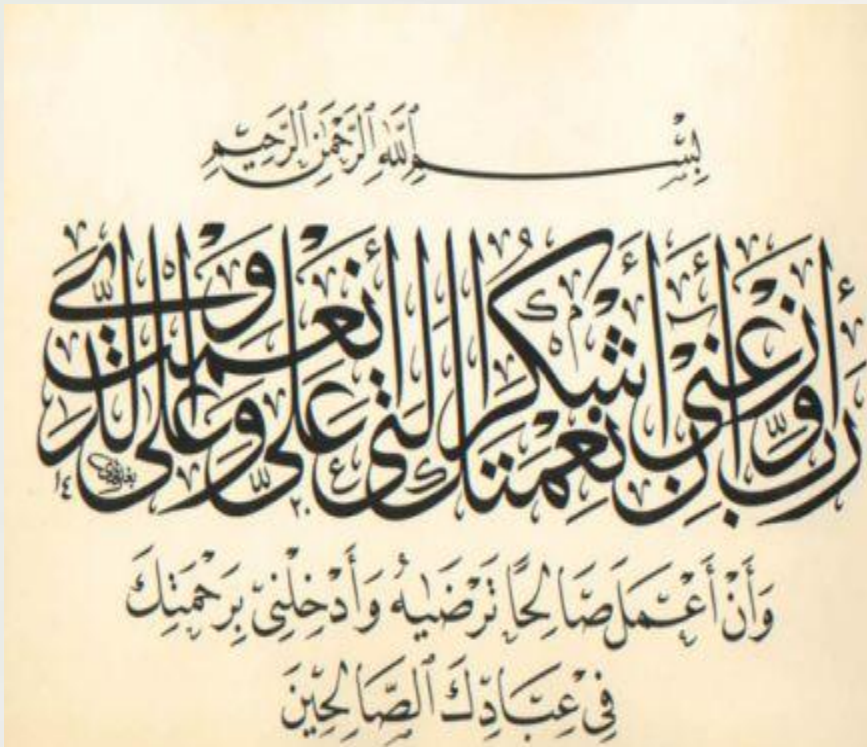 بِسْمِ ٱللَّهِ ٱلرَّحْمَٰنِ ٱلرَّحِيمِ
رَبِّ أَوْزِعْنِىٓ أَنْ أَشْكُرَ نِعْمَتَكَ ٱلَّتِىٓ أَنْعَمْتَ عَلَىَّ وَعَلَىٰ وَٰلِدَىَّ
وَأَنْ أَعْمَلَ صَالِحًا تَرْضَىٰهُ وَأَدْخِلْنِى بِرَحْمَتِكَ
فِى عِبَادِكَ ٱلصَّالِحِينَ